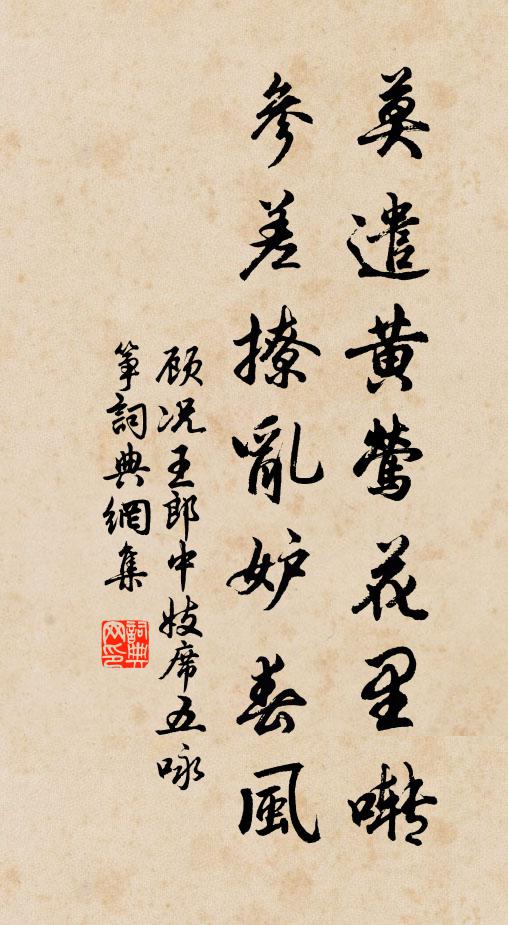 莫遣黄莺花里囀
參差撩亂妒春風
顾况王郎中妓席五咏
筝詞典網集
詞典網印